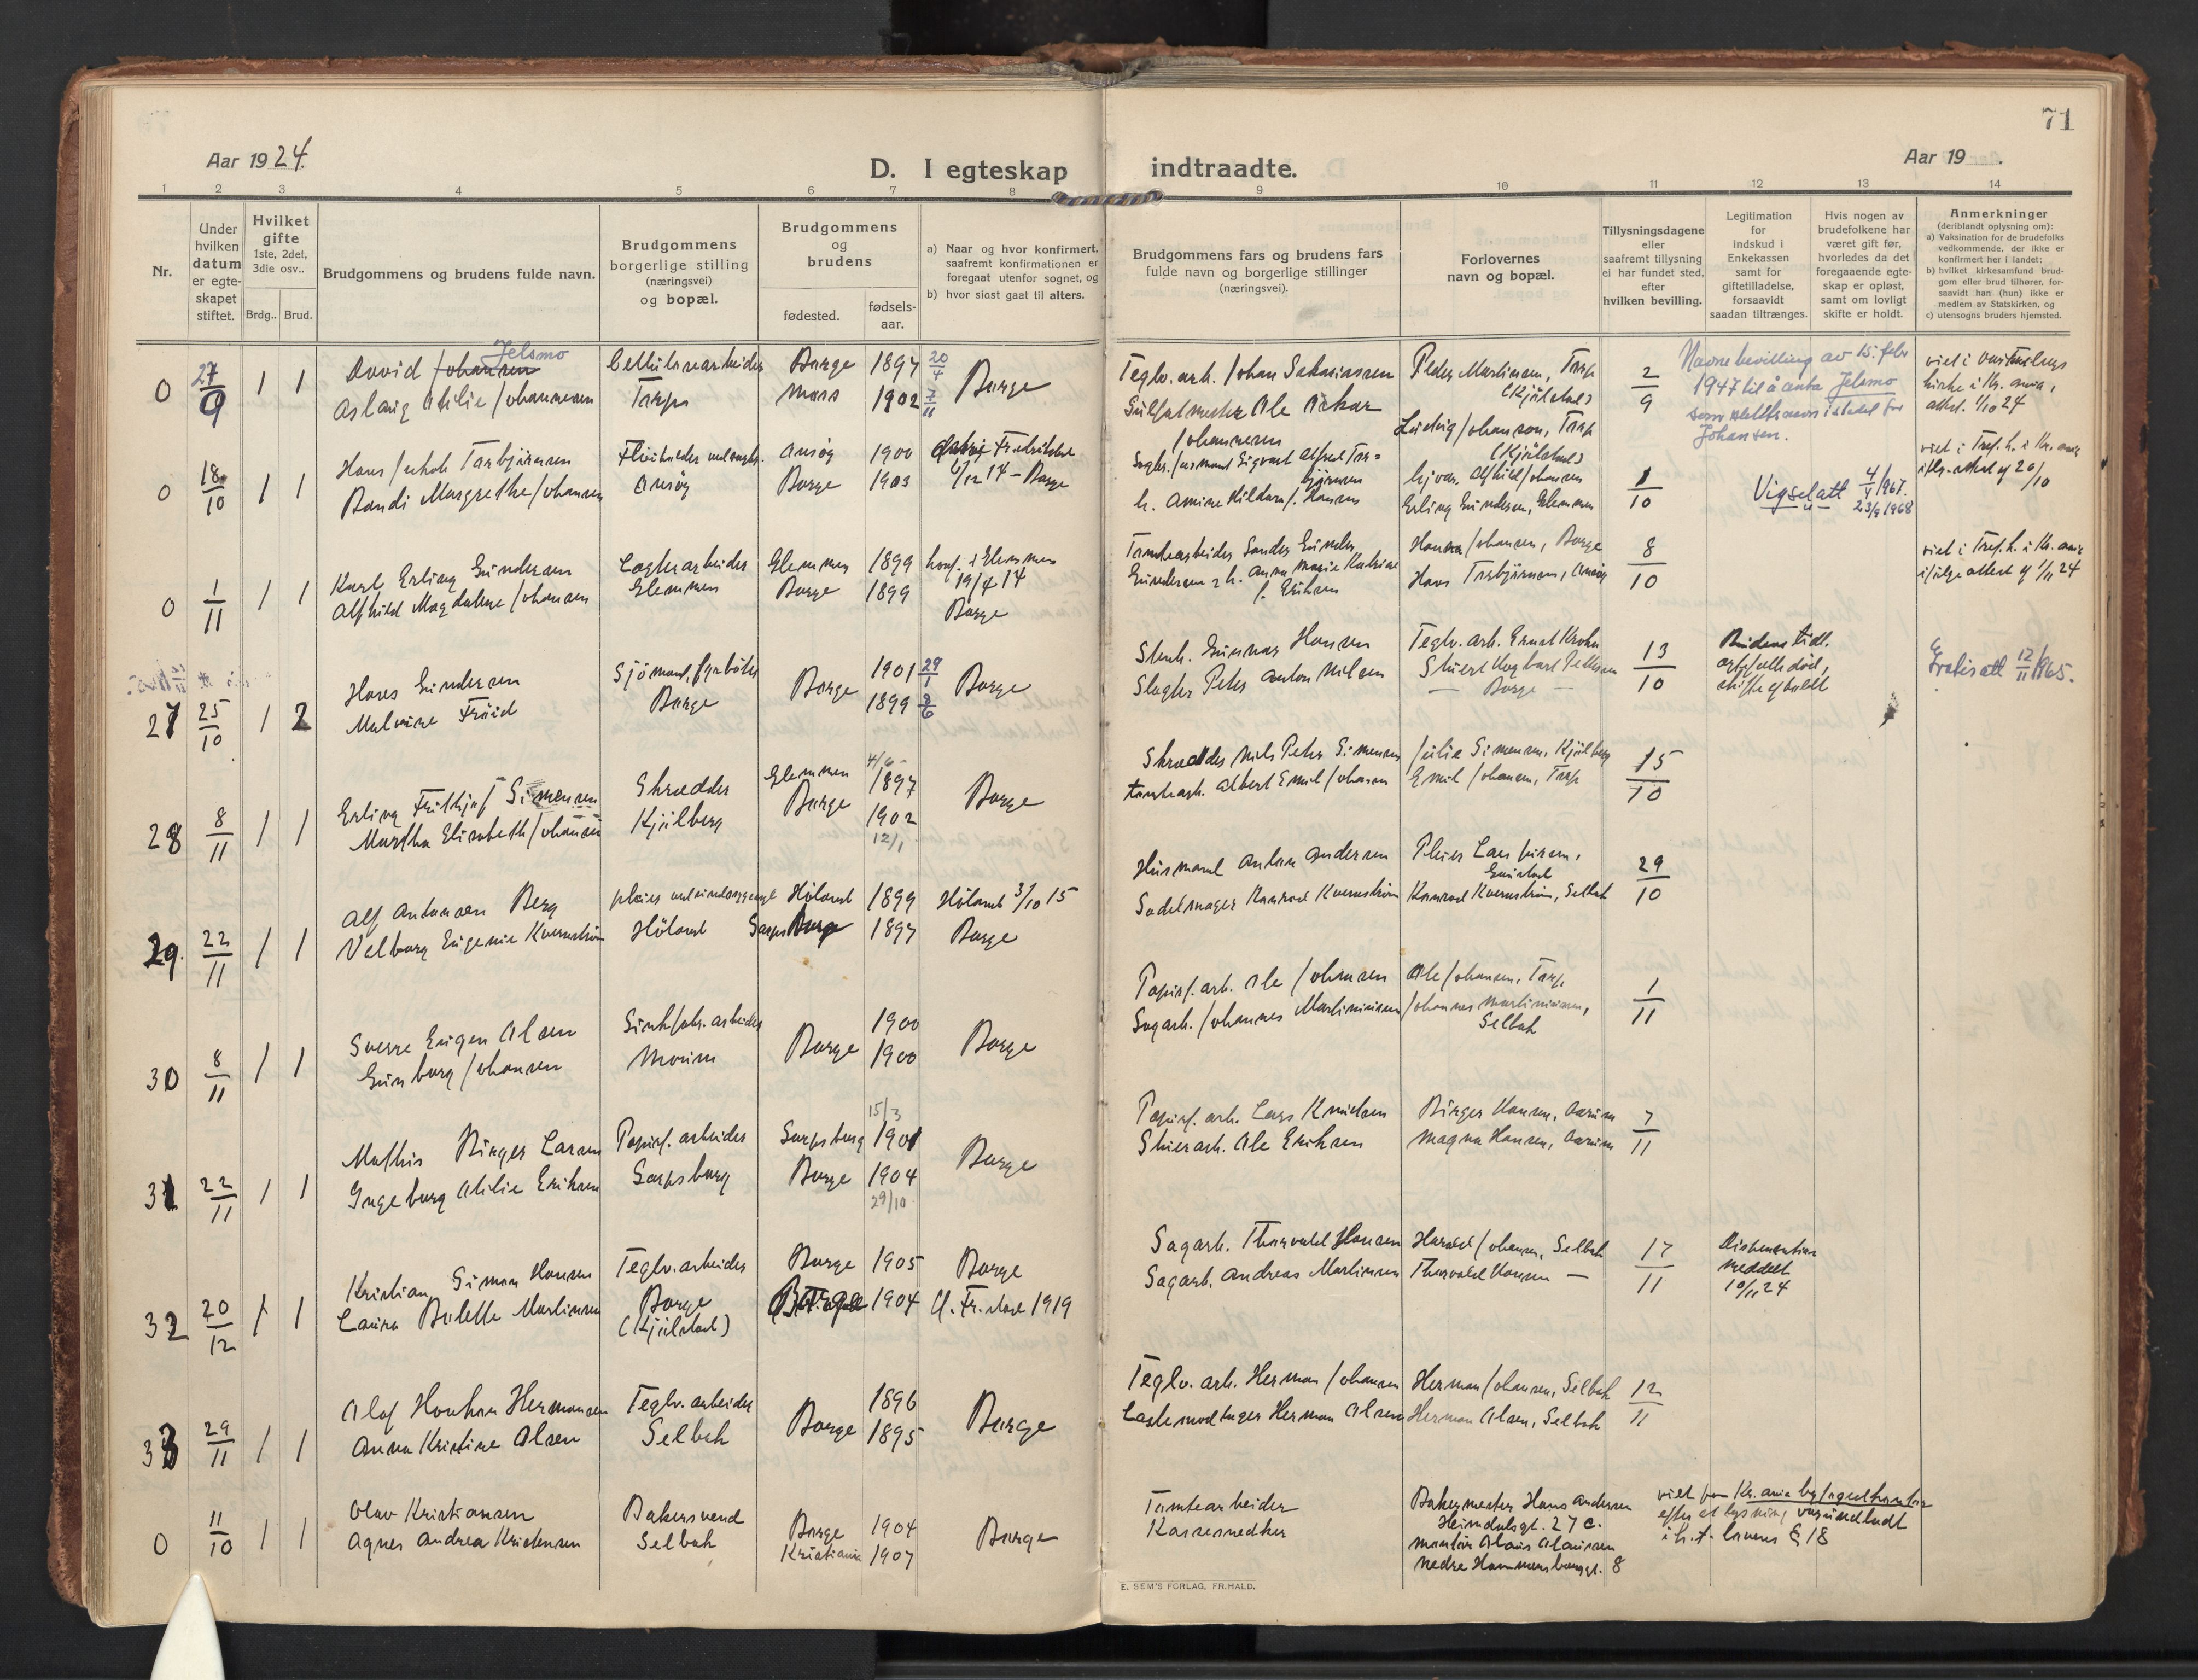 71
Aar 1924.
D. I egteskap indtraadte.
Aar 19 .
1 2 3 4 5 6 7 8 9 10 11 12 13 14
Nr.
Under hvilken datum er egteskapet stiftet.
Hvilket gifte 1ste, 2det, 3die osv..
Brdg.. Brud.
Brudgommens og brudens fulde navn.
Brudgommens borgerlige stilling (næringsvei) og bopæl.
Brudgommens og brudens
fødested.
fødsels-aar.
a) Naar og hvor konfirmert, saafremt konfirmationen er foregaat utenfor sognet, og
b) hvor sidst gaat til alters.
Brudgommens fars og brudens fars fulde navn og borgerlige stillinger (næringsvei).
Forlovernes navn og bopæl.
Tillysningsdagene eller saafremt tillysning ei har fundet sted, efter hvilken bevilling.
Legitimation for indskud i Enkekassen samt for giftetilladelse, forsaavidt saadan tiltrænges.
Hvis nogen av brudefolkene har været gift før, hvorledes da det foregaaende egteskap er opløst, samt om lovligt skifte er holdt.
Anmerkninger
(deriblandt oplysning om):
a) Vaksination for de brudefolks vedkommende, der ikke er konfirmert her i landet;
b) hvilket kirkesamfund brudgom eller brud tilhører, forsaavidt han (hun) ikke er medlem av Statskirken, og
c) utensogns bruders hjemsted.
0 27/9 1 1
David Johansen Jelsmo
Aslaug Otilie Johannesen
Cellulosearbeider
Torp
Borge 1897 20/4
Moss 1902 7/11
Borge
Teglv. arb. Johan Sakariassen
Sulfatmester Ole Oskar Johannesen
Peder Martinsen, Torp (Kjølstad)
Ludvig Johanson, Torp (Kjølstad)
2/9
Navnebevilling av 15. febr 1947 til å anta Jelsmo som slektsnavn istedet for Johansen.
kirke i Kr.ania, attest. 1/10 24
0 18/10 1 1
Hans Jakob Torbjørnsen
Bondi Margrethe Johansen
Onsøy
Onsøy 1900
Borge 1903
6/12 14 - Borge
Erling Gundersen, Glemmen
1/10
Vigselatt 4/4 1967.
23/9 1968
viet i Tref. k. i Kr. ania
ifølg. attest af 20/10
0 1/11 1 1
Karl Erling Gundersen
Alfhild Magdalene Johansen
Lagterarbeider
Glemmen
Glemmen 1899
Borge 1899
konf. i Glemmen 19/4 14
Borge
Tomtearbeider Sander Gunder
Gundersen z h. Anna Marie Katrine f. Eriksen
Hanna Johansen, Borge
Hans Torbjørnsen, Onsøy
8/10
viet i Tref. k. i Kr. ania
ifølge attest af 1/11 24
27 25/10 1 2
Hans Gundersen
Malvine Frøid
Sjømand, fyrbøter
Borge
Borge
1901 29/1
1899 8/6
Borge
Stenh. Gunnar Hansen
Slagter Peter Anton Nilsen
Teglv. arb. Ernst Krohn
— Borge —
13/10
Brudens tidl. egtefælle død, skifte afholdt
Gratisatt 12/11 1965.
28 8/11 1 1
Erling Frithjof Simensen
Martha Elisabeth Johansen
Skrædder
Kjølberg
Glemmen 4/6 1897
Borge 1902 12/1
Borge
Skrædder Nils Peter Simensen
tomtearb. Albert Emil Johansen
Julie Simensen, Kjølberg
Emil Johansen, Torp
15/10
29. 22/11 1 1
Alf Antonsen Berg
Valborg Eugenie Kvernstrøm
Høland
Høland 1899
Sarpsborg 1897
Høland 3/10 15
Borge
Husmand Anton Andersen
Sadelmager Konrad Kvernstrøm
Konrad Kvernstrøm, Selbak
29/10
30 8/11 1 1
Sverre Eugen Olsen
Gunborg Johansen
Sinkfabr. arbeider
Moum
Borge
1900
1900
Borge
Papirf. arb. Ole Johansen
Sagarb. Johannes Martiniussen
Ole Johansen, Torp,
Johannes Martiniussen, Selbak
1/11
31 22/11 1 1
Mathis Birger Larsen
Ingeborg Otilie Eriksen
Papirf. arbeider
Sarpsborg
Sarpsborg 15/3 1901
Borge 1904 29/10
Borge
Papirf. arb. Lars Knudsen
Stuerarb. Ole Eriksen
Birger Hansen, Aarum
Magna Hansen, Aarum
7/11
32 20/12 1 1
Kristian Simon Hansen
Laura Bulette Martinsen
Teglv. arbeider
Borge
(Kjølstad)
Borge 1905
Borge 1904
Borge
Gl. Fr.stad 1919
Sagarb. Thorvald Hansen
Sagarb. Andreas Martinsen
Harald Johansen, Selbak
Thorvald Hansen —
17/11
Dispensation meddelt 10/11 24
33 29/11 1 1
Olaf Haakon Hermansen
Anna Kristine Olsen
Teglv. arbeider
Selbak
Borge
1896
1895
Borge
Teglv. arb. Herman Johansen
Lastemodtager Herman Olsen
Herman Johansen, Selbak
Herman Olsen, Selbak
12/11
0 11/10 1 1
Olav Kristiansen
Agnes Andrea Kristensen
Bakersvend
Selbak
Borge 1904
Kristiania 1907
Borge
Tomtearbeider
Kassesnedker
Bakermester Hans Andersen
Heimdalsgt. 27 c.
montør Olaus Olaussen
Nedre Hammersborggt. 8
viet for Kr.ania byfogedkontor
efter at lysning var undladt
i h. t. lovens § 18
E. SEM'S FORLAG, FR.HALD.